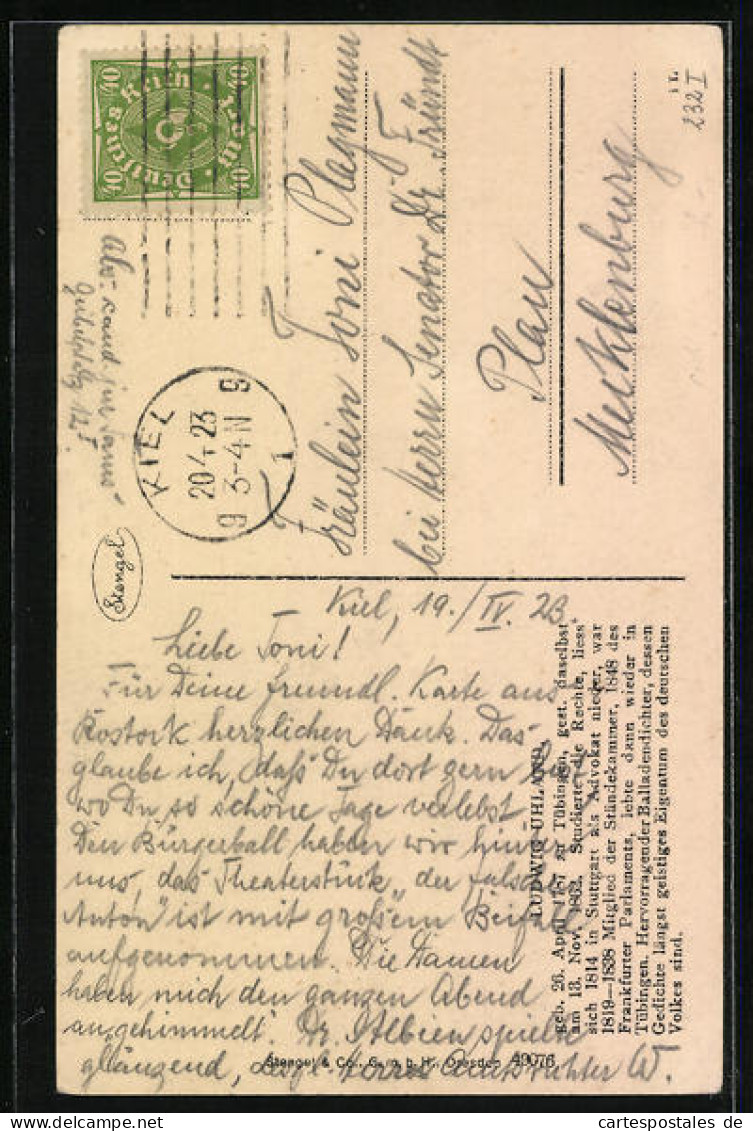 Deutsches Reich
40 40
40 40
KIEL
20 4 23
9 3-4 N 9
1
Fräulein Toni Plagmann
bei Herrn Senator Dr. Fründt
Plau
Mecklenburg
232 I
Stengel
Kiel, 19./IV. 23
Liebe Toni!
Für Deine freundl. Karte aus
Rostock herzlichen Dank. Das
glaube ich, daß Du dort gern
wo Du so schöne Tage verlebst
Den Bürgerball haben wir hinter
uns, das Theaterstück „der falsche
Anton" ist mit großem Beifall
aufgenommen. Die Damen
haben mich den ganzen Abend
angehimmelt. Dr. Albien spielte
glänzend, desgl. Amtsrichter W.
LUDWIG UHLAND,
geb. 26. April 1787 zu Tübingen, gest. daselbst
am 13. Nov. 1862. Studierte die Rechte, liess
sich 1814 in Stuttgart als Advokat nieder, war
1819—1838 Mitglied der Ständekammer, 1848 des
Frankfurter Parlaments, lebte dann wieder in
Tübingen. Hervorragender Balladendichter, dessen
Gedichte längst geistiges Eigentum des deutschen
Volkes sind.
Stengel & Co., G. m. b. H., Dresden 49076
cartespostales-delcampe.com